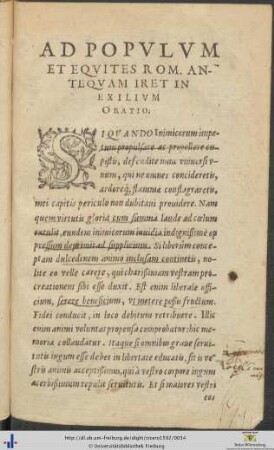 AD POPVLVM
ET EQVITES ROM. AN-
TEQVAM IRET IN
EXILIVM
ORATIO.
SI QVANDO Inimicorum impe-
tum propulsare ac propellere cu-
pistis, defendite nunc vniuersi v-
num, qui ne omnes concideretis,
ardoreq́; flammæ conflagraretis,
mei capitis periculo non dubitaui prouidere. Nam
quem virtutis gloria cum summa laude ad cœlum
extulit, eundem inimicorum inuidia indignissimè op
pressum deprimit ad supplicium. Si liberûm conce-
ptam dulcedinem animo inclusam continetis, no-
lite eo velle carere, qui charissimam vestram pro-
creationem sibi esse duxit. Est enim liberale offi-
cium, serere beneficium, vt metere possis fructum.
Fidei conducit, in loco debitum retribuere. Illic
enim animi voluntas propensa comprobatur: hîc me-
moria collaudatur. Itaque si omnibus graue serui-
tutis iugum esse debet in libertate educatis, sit is ve-
stris animis acceptissimus, qui à vestro corpore iugum
acerbissimum repulit seruitutis. Et si maiores vestri
eos
http://dl.ub.uni-freiburg.de/diglit/cicero1592/0014
© Universitätsbibliothek Freiburg